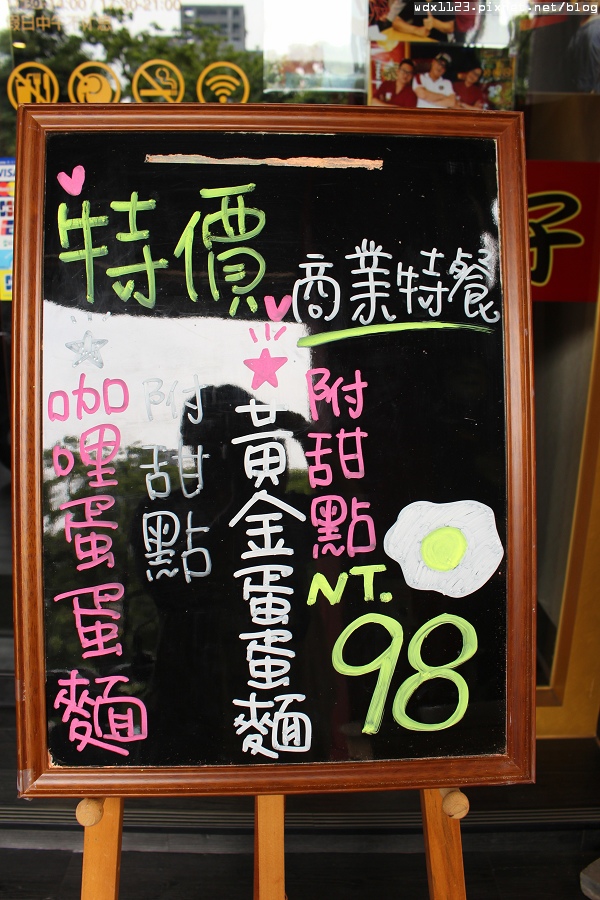 wdx1123.pixnet.net/blog
特價
商業特餐
附甜點
黃金蛋蛋麵
NT.
98
附甜點
咖哩蛋蛋麵
VISA